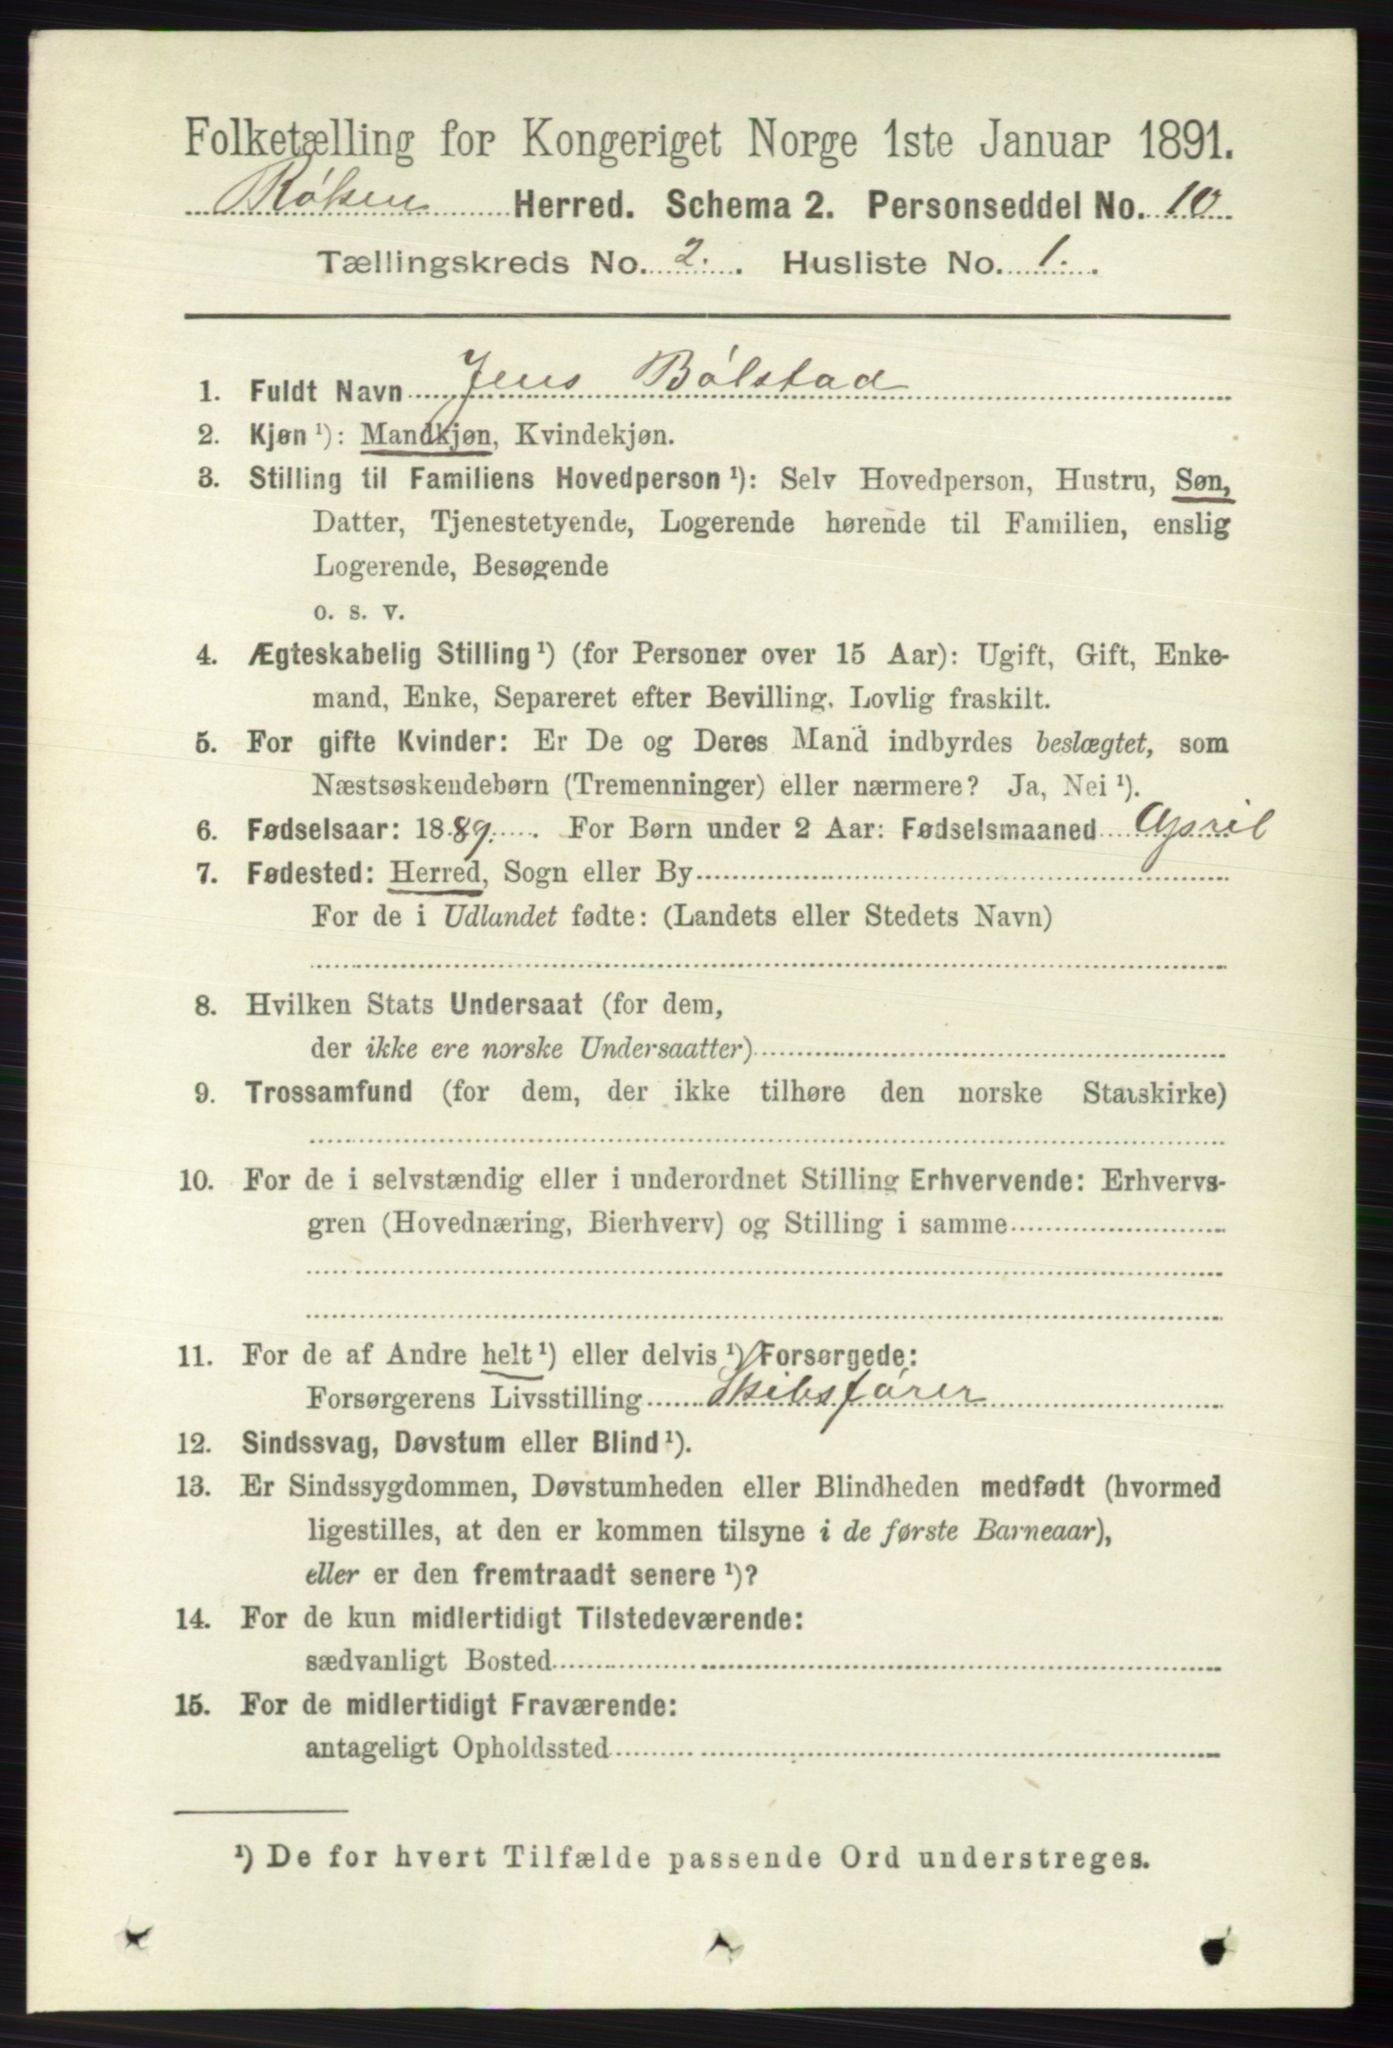 Folketælling for Kongeriget Norge 1ste Januar 1891.
Røken Herred. Schema 2. Personseddel No. 10
Tællingskreds No. 2. Husliste No. 1.
1. Fuldt Navn Jens Bølstad
2. Kjøn ¹): Mandkjøn, Kvindekjøn.
3. Stilling til Familiens Hovedperson ¹): Selv Hovedperson, Hustru, Søn,
Datter, Tjenestetyende, Logerende hørende til Familien, enslig
Logerende, Besøgende
o. s. v.
4. Ægteskabelig Stilling ¹) (for Personer over 15 Aar): Ugift, Gift, Enke-
mand, Enke, Separeret efter Bevilling. Lovlig fraskilt.
5. For gifte Kvinder: Er De og Deres Mand indbyrdes beslægtet, som
Næstsøskendebørn (Tremenninger) eller nærmere? Ja, Nei ¹).
6. Fødselsaar: 1889. For Børn under 2 Aar: Fødselsmaaned April
7. Fødested: Herred, Sogn eller By
For de i Udlandet fødte: (Landets eller Stedets Navn)
8. Hvilken Stats Undersaat (for dem,
der ikke ere norske Undersaatter)
9. Trossamfund (for dem, der ikke tilhøre den norske Statskirke)
10. For de i selvstændig eller i underordnet Stilling Erhvervende: Erhvervs-
gren (Hovednæring, Bierhverv) og Stilling i samme
11. For de af Andre helt ¹) eller delvis ¹) Forsørgede:
Forsørgerens Livsstilling Skibsfører
12. Sindssvag, Døvstum eller Blind ¹).
13. Er Sindssygdommen, Døvstumheden eller Blindheden medfødt (hvormed
ligestilles, at den er kommen tilsyne i de første Barneaar),
eller er den fremtraadt senere ¹)?
14. For de kun midlertidigt Tilstedeværende:
sædvanligt Bosted
15. For de midlertidigt Fraværende:
antageligt Opholdssted
¹) De for hvert Tilfælde passende Ord understreges.